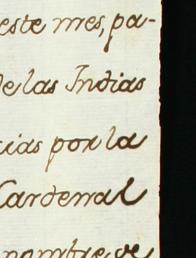 este mes, pa-
de las Indias
cias por la
Cardenal
nombre de